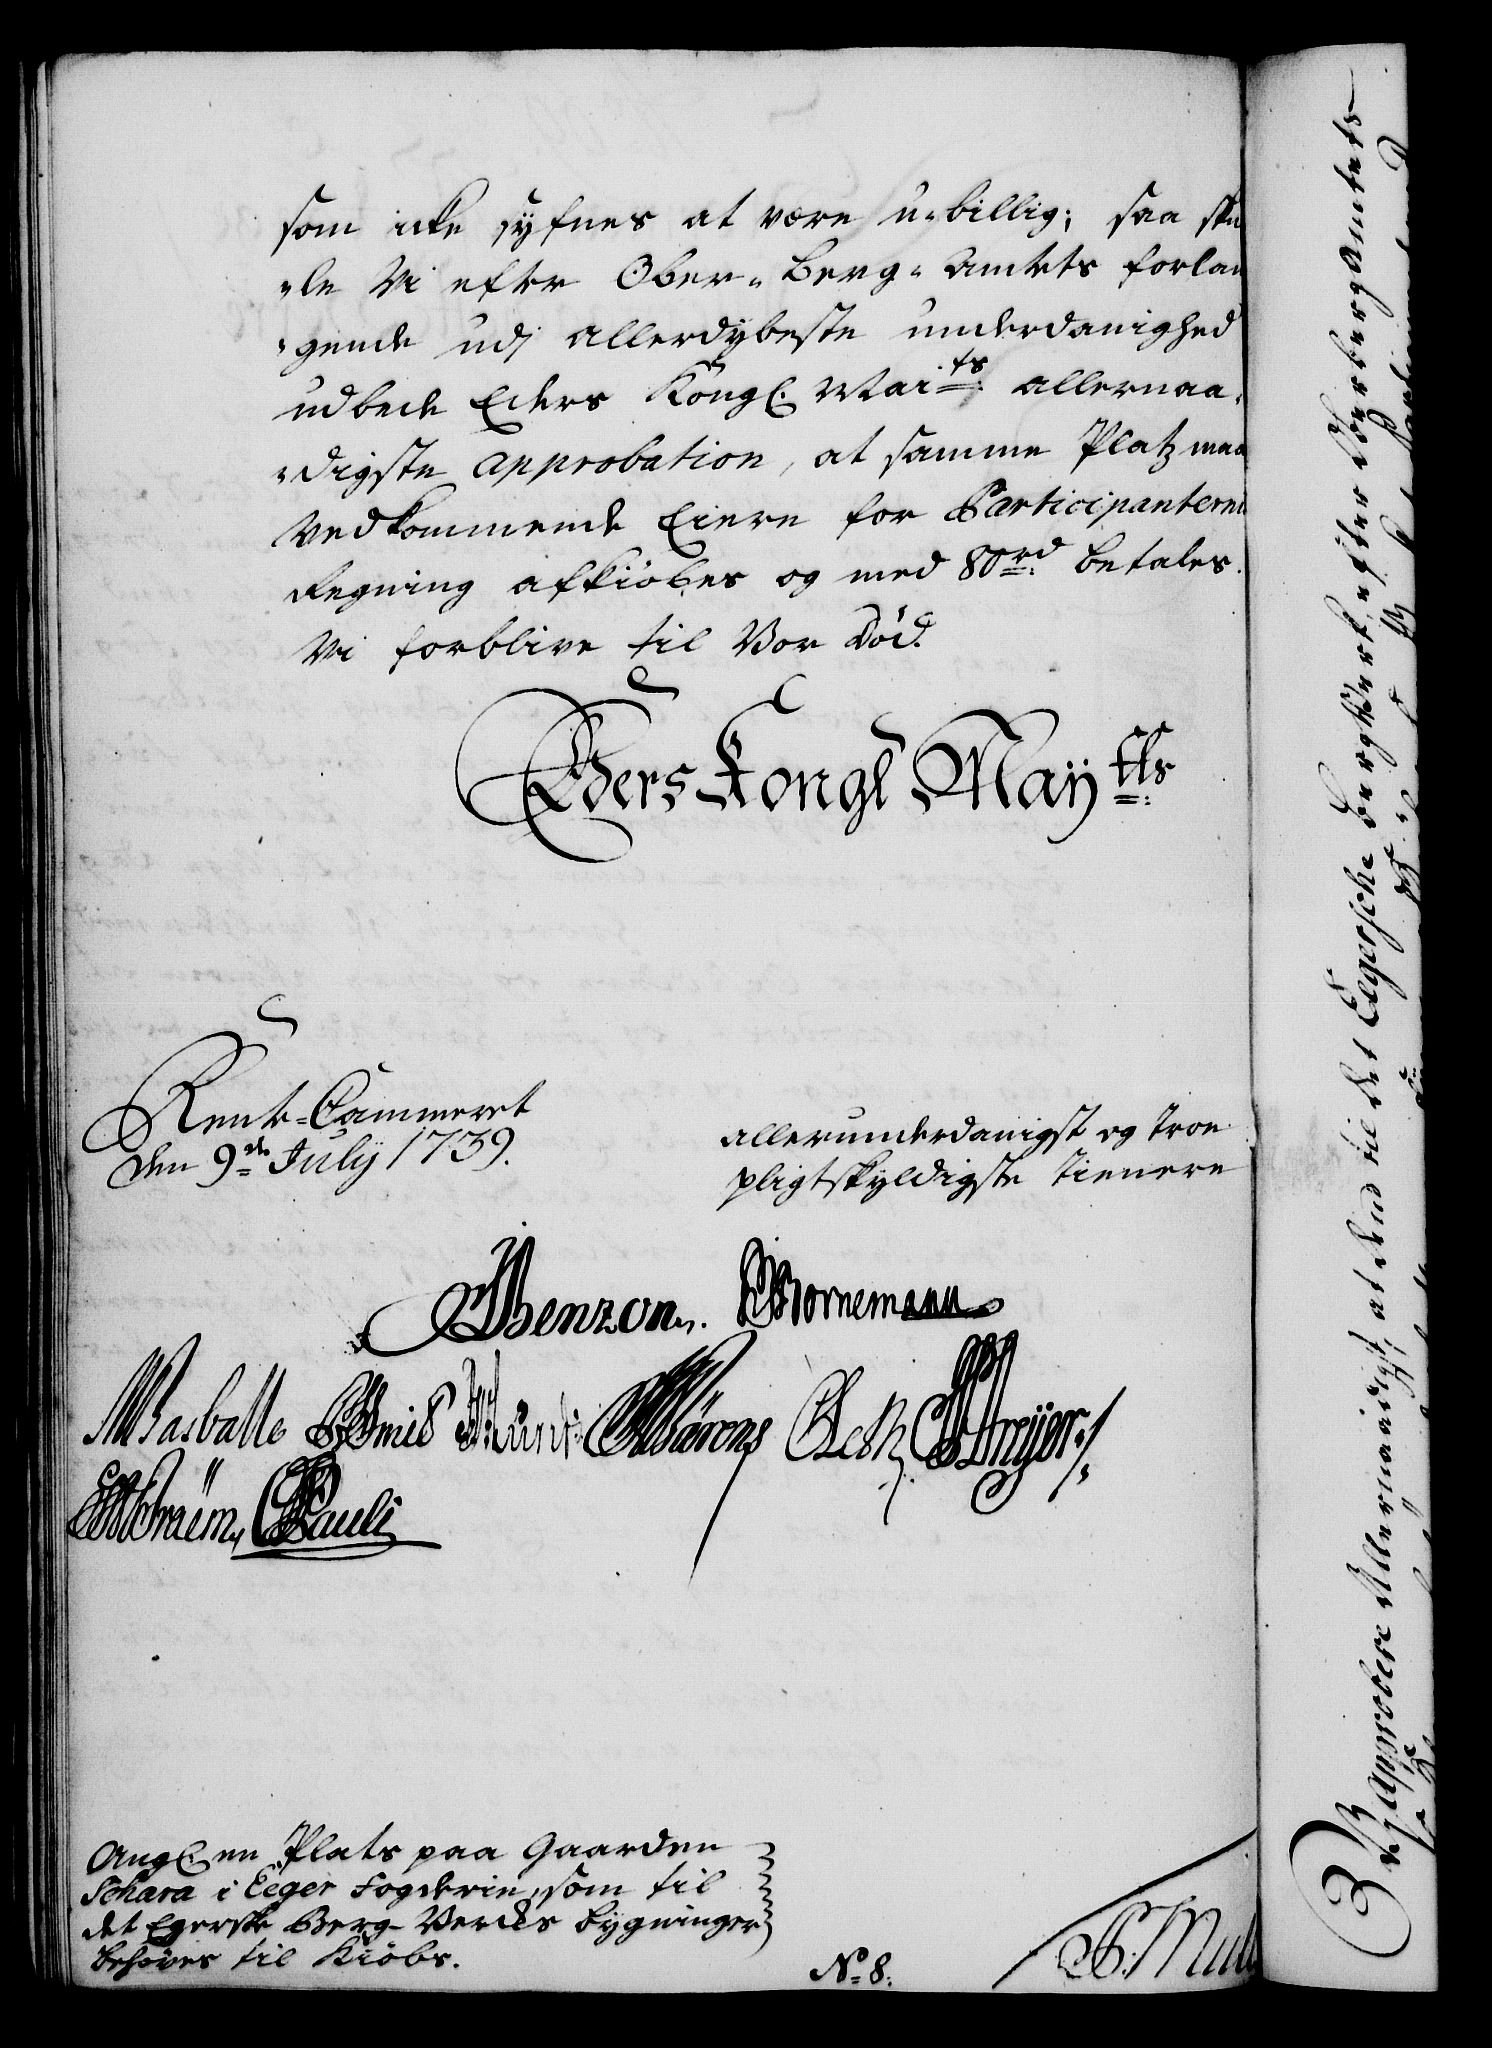 som icke syfnes at være u-billig; saa sku
"le Vi efter Ober- Berg- Amtets forlan
"gende udj allerdybeste underdanighed
udbede Eders Kongl. Mai:ts allernaa-
"digste approbation, at samme Platz maa
Vedkommende Eiere for Participanternes
Regning afkiöbes og med 80rd betales.
Vi forblive til Vor Död.
Eders Kongl Maytts
Rente-Cammeret
den 9de July 1739.
allerunderdanigst og Troe
pligtskyldigste Tienere
Benzon. Bornemann
Basballe Smidt Bärens Dreyer
Pauli
Angl. en Plats paa Gaarden
Schara i Eeger Fogderie, som til
det Egerske Berg-Verdes bygninger
behöves til Kiöbs.
No 8.
Müll
Vi approbere Allernaadigst, at den til det Egerske bergverk, efter Oberbergamtets